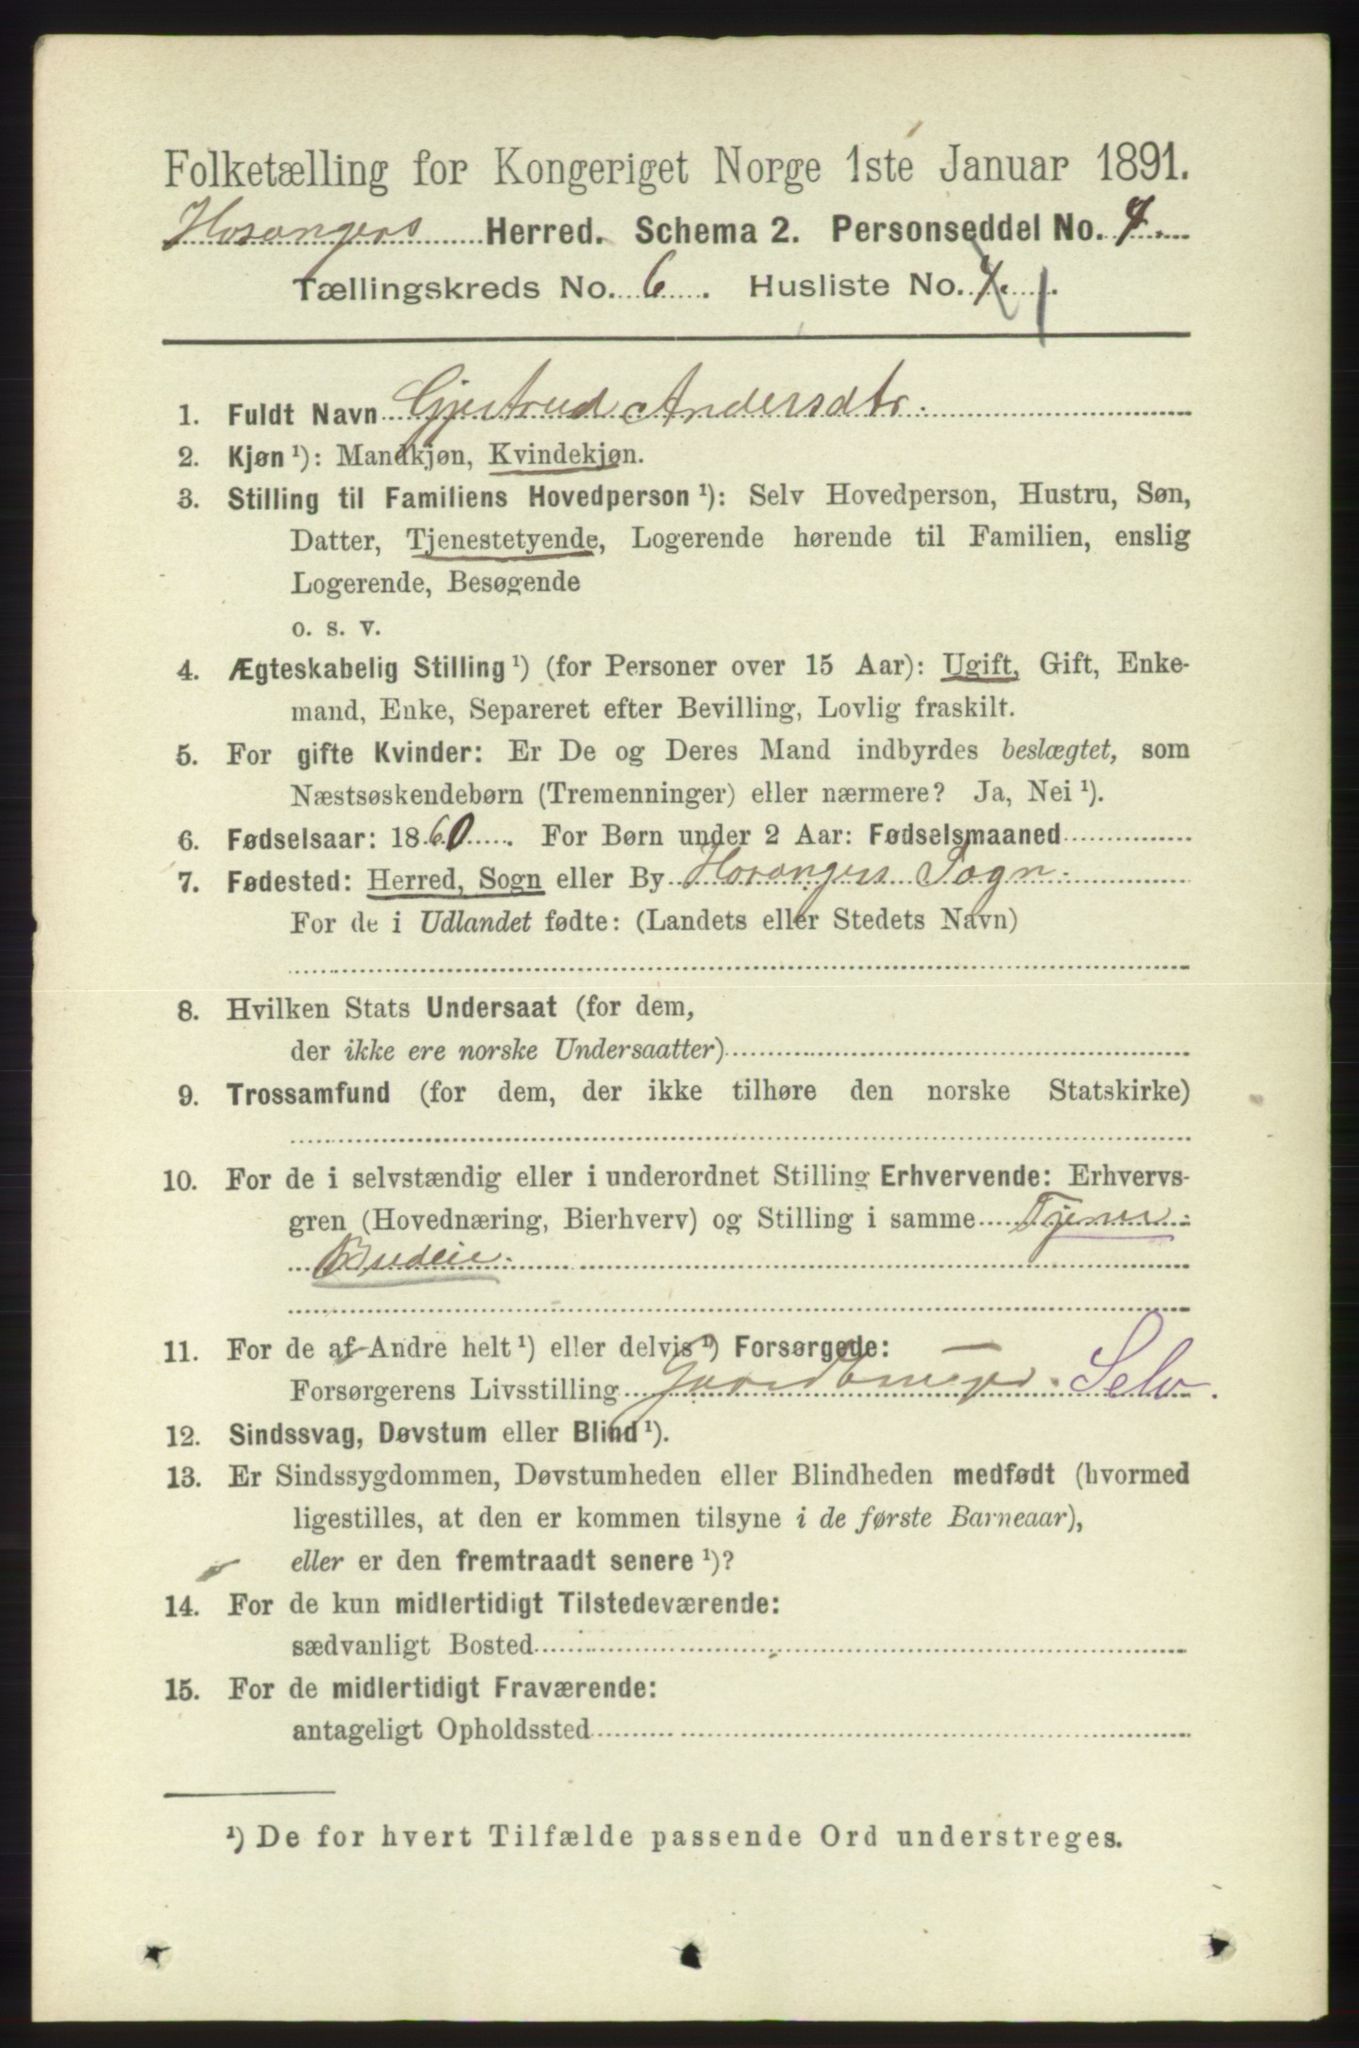 Folketælling for Kongeriget Norge 1ste Januar 1891.
Hosangers Herred. Schema 2. Personseddel No. 4.
Tællingskreds No. 6. Husliste No. 4. 1.
1. Fuldt Navn Gjertrud Andersdtr.
2. Kjøn ¹): Mandkjøn, Kvindekjøn.
3. Stilling til Familiens Hovedperson ¹): Selv Hovedperson, Hustru, Søn,
Datter, Tjenestetyende, Logerende hørende til Familien, enslig
Logerende, Besøgende
o. s. v.
4. Ægteskabelig Stilling ¹) (for Personer over 15 Aar): Ugift, Gift, Enke-
mand, Enke, Separeret efter Bevilling, Lovlig fraskilt.
5. For gifte Kvinder: Er De og Deres Mand indbyrdes beslægtet, som
Næstsøskendebørn (Tremenninger) eller nærmere? Ja, Nei ¹).
6. Fødselsaar: 1860. For Børn under 2 Aar: Fødselsmaaned
7. Fødested: Herred, Sogn eller By Hosangers Sogn.
For de i Udlandet fødte: (Landets eller Stedets Navn)
8. Hvilken Stats Undersaat (for dem,
der ikke ere norske Undersaatter)
9. Trossamfund (for dem, der ikke tilhøre den norske Statskirke)
10. For de i selvstændig eller i underordnet Stilling Erhvervende: Erhvervs-
gren (Hovednæring, Bierhverv) og Stilling i samme Tjener
Budeie.
11. For de af Andre helt ¹) eller delvis ¹) Forsørgede:
Forsørgerens Livsstilling Gaardbruger. Selv.
12. Sindssvag, Døvstum eller Blind ¹).
13. Er Sindssygdommen, Døvstumheden eller Blindheden medfødt (hvormed
ligestilles, at den er kommen tilsyne i de første Barneaar),
eller er den fremtraadt senere ¹)?
14. For de kun midlertidigt Tilstedeværende:
sædvanligt Bosted
15. For de midlertidigt Fraværende:
antageligt Opholdssted
¹) De for hvert Tilfælde passende Ord understreges.